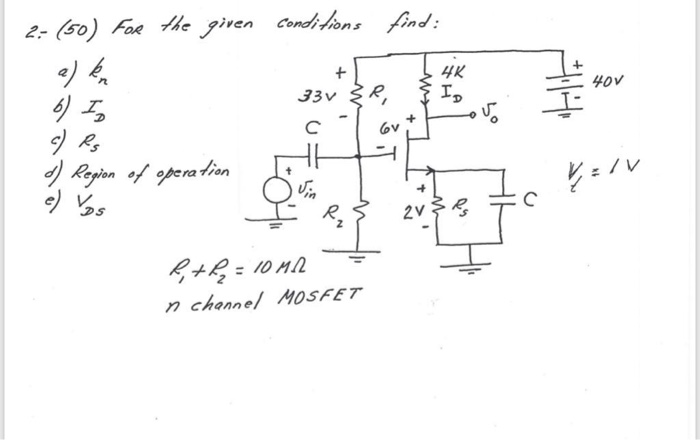 2.- (50) FOR the given conditions find:
a) kn
b) ID
c) Rs
d) Region of operation
e) VDS
+
33V
-
R1
4K
ID
+
6V
-
vo
+
-
40V
C
+
vin
-
R2
+
2V
-
Rs
C
Vt = 1V
R1 + R2 = 10 MΩ
n channel MOSFET